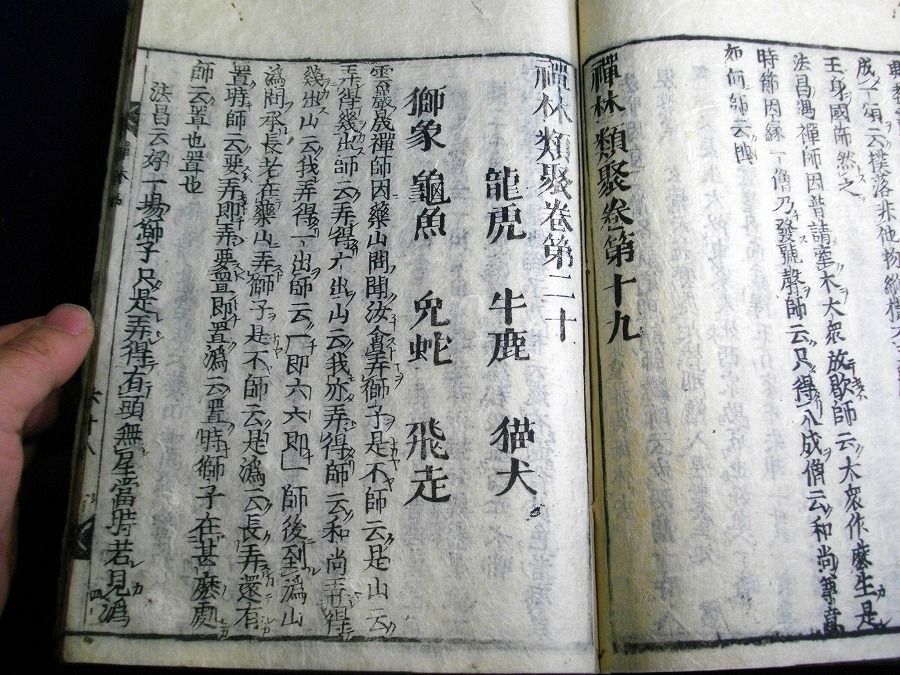 成一頌云撲落非他物縱橫不
王身國師然之
法昌遇禪師因普請塞木大衆放歇師云大衆作麼生是
時節因緣一僧乃發號聲師云只得八成僧云和尚尊意
如何師云囲
禪林類聚卷第十九
禪林類聚卷第二十
龍虎　牛鹿　猫犬
獅象　龜魚　兔蛇　飛走
雲巖晟禪師因藥山問聞汝會弄獅子是不師云是山云
弄得幾出師云弄得六出山云我亦弄得師云和尚弄得
幾出山云我弄得一出師云一即六六即一師後到溈山
溈問承長老在藥山弄獅子是不師云是溈云長弄還有
置時師云要弄即弄要置即置溈云置時獅子在甚麼處
師云置也置也
法昌云好一場獅子只是弄得有頭無尾當時若見溈